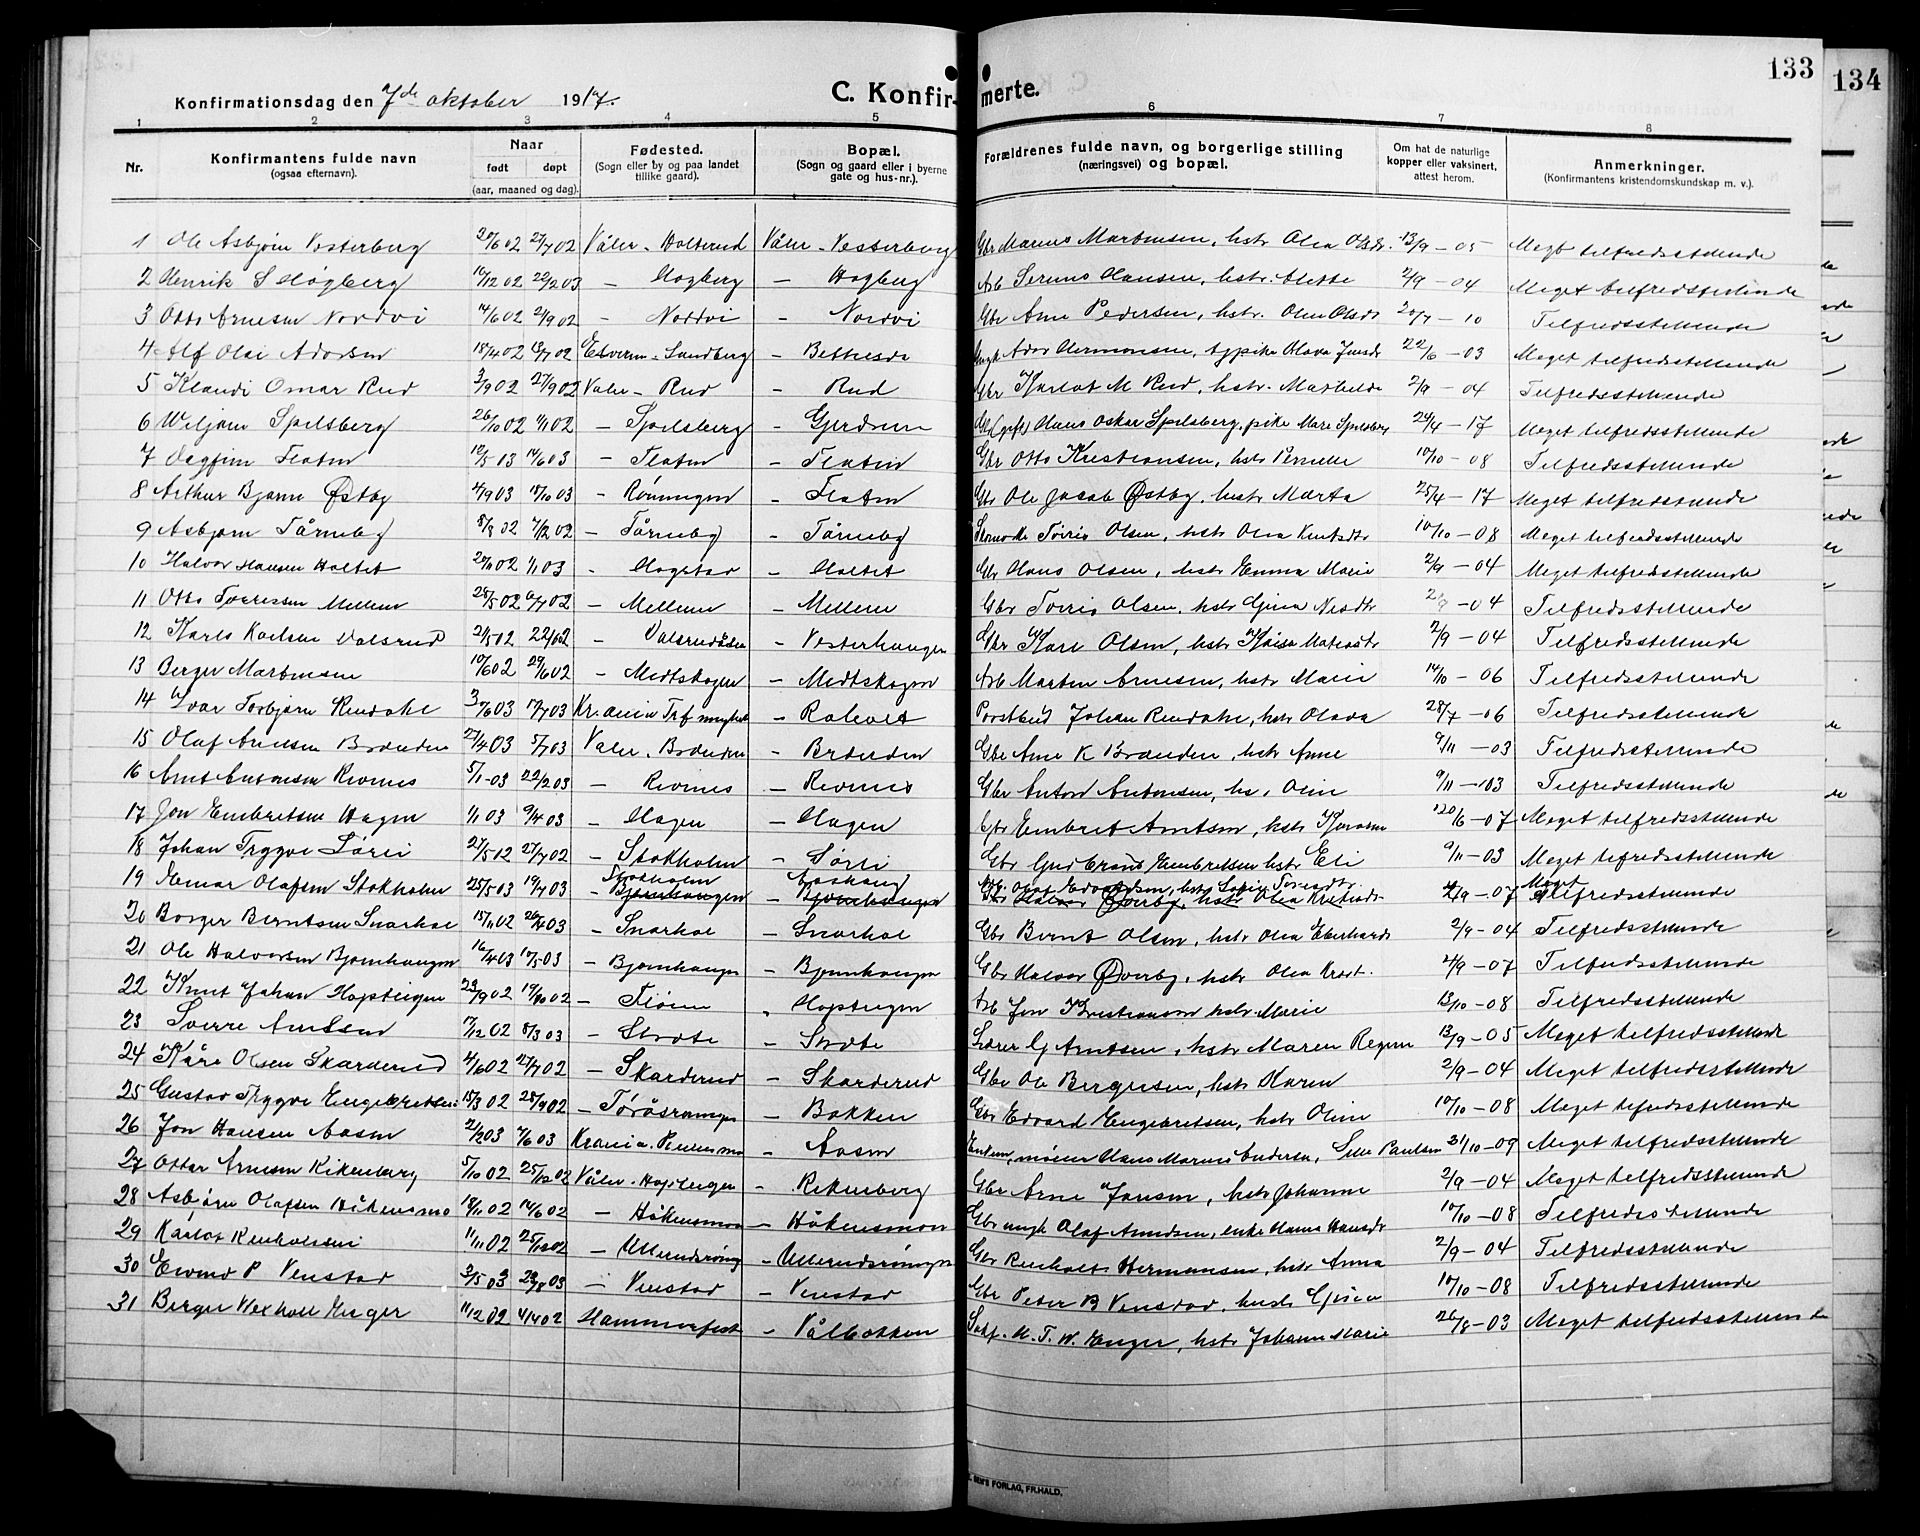 133
134
Konfirmationsdag den 7de oktober 1917. C. Konfirmerte.
1 2 3 4 5 6 7 8
Nr. Konfirmantens fulde navn (ogsaa efternavn). Naar født døpt (aar, maaned og dag). Fødested. (Sogn eller by og paa landet tillike gaard). Bopæl. (Sogn og gaard eller i byerne gate og hus-nr.). Forældrenes fulde navn, og borgerlige stilling (næringsvei) og bopæl. Om hat de naturlige kopper eller vaksinert, attest herom. Anmerkninger. (Konfirmantens kristendomskundskap m. v.).
1 Ole Asbjørn Vesterberg 02 27/7 02 Våler - Holterud Våler - Vesterberg Gbr Marius Martinsen, hstr. Olea Olsdr. 13/9 - 05 Meget tilfredsstillende
2 Henrik S Høgberg 16/12 02 22/2 03 - Høgberg - Høgberg Arb Serinus Hansen, hstr. Alette 2/9 - 04 Meget tilfredsstillende
3 Otto Arnesen Nordvi 14/6 02 21/9 02 - Nordvi - Nordvi Gbr Arne Pedersen, hstr. Olea Olsdr 20/7 - 10 Tilfredsstillende
4 Alf Olai Adorsen 18/4 02 13/7 02 Elverum - Sundberg - Bethesda Ador Hermansen, pike Olava Jensdr 22/6 - 03 Meget tilfredsstillende
5 Klaudi Omar Rud 3/9 02 27/9 02 Våler - Rud - Rud Gbr Karlot M Rud, hstr. Mathilde 2/9 - 04 Tilfredsstillende
6 Wiljam Spilsberg 26/10 02 1/11 02 - Spilsberg - Gjerdrum (gift) Hans Oskar Spilsberg, pike Mare Spilsberg 24/4 - 17 Meget tilfredsstillende
7 Dagfin Flaten 12/5 03 14/6 03 - Flaten - Flaten Gbr Otto Kristiansen, hstr Pernille 10/10 - 08 Tilfredsstillende
8 Arthur Bjarne Østby 4/9 03 17/10 03 - Rønningen - Flaten Gbr Ole Jacob Østby, hstr Marta 25/4 - 17 Meget tilfredsstillende
9 Asbjørn Tårneby 5/8 02 7/12 02 - Tårneby - Tårneby Skomaker Torris Olsen, hstr Olea Knutsdtr 10/10 - 08 Meget tilfredsstillende
10 Halvor Hansen Holtet 27/11 02 1/1 03 - Hagstad - Holtet Gbr Hans Olsen, hstr Emma Marie 2/9 - 04 Meget tilfredsstillende
11 Otto Torrissen Mellem 25/5 02 6/7 02 - Mellem - Mellem Gbr Torris Olsen, hstr Gina Nesdtr 2/9 - 04 Tilfredsstillende
12 Karls Karlsen Valsrud 2/5 02 22/6 02 - Valsrudåsen - Vesterhaugen Gbr Karl Olsen, hstr Kaisa Matiasdtr 2/9 - 04 Tilfredsstillende
13 Berger Martinsen 10/6 02 29/6 02 - Medtskogen - Medtskogen Arb Martin Arnesen, hstr Marie 14/10 - 06 Tilfredsstillende
14 Ivar Torbjørn Rendahl 3/6 03 12/7 03 Kr.ania - Ralevet Postbud Johan Rendahl, hstr Olava 28/7 - 06 Tilfredsstillende
15 Olaf Arnesen Brænden 27/4 03 5/7 03 Våler - Brænden - Brænden Gbr Arne K Brænden, hstr Anne 9/11 - 03 Tilfredsstillende
16 Arnt Antonsen Revnes 5/1 - 03 22/2 03 - Revnes - Revnes Gbr Anton Antonsen, hs. Oline 9/11 - 103 Tilfredsstillende
17 Jon Embretsen Hagen 1/1 03 9/4 03 - Hagen - Hagen Gbr Embret Arntsen, hstr 20/6 - 07 Meget tilfredsstillende
18 Johan Trygve Sørli 27/5 02 27/7 02 - Stokholm - Sørli Gbr Gudbrand Embretsen hstr Eli 9/11 - 03 Meget tilfredsstillende
19 Einar Olafsen Stokholm 25/5 03 19/7 03 - Stokholm Bjørnhaugen - Bjørnhaugen Arb. Olaf Edvardsen, hstr Sofie Gbr Halvor Øverby, hstr Olea Kristiansdr 4/9 - 07 Meget tilfredsstillende
20 Borger Berntsen Snarhol 15/11 02 26/4 03 - Snarhol - Snarhol Gbr Bernt Olsen, hstr Olea Eberhardsdr 2/9 - 04 Tilfredsstillende
21 Ole Halvorsen Bjørnhaugen 16/4 03 17/5 03 - Bjørnhaugen - Bjørnhaugen Gbr Halvor Øverby, hstr Olea Krist. 4/9 - 07 Tilfredsstillende
22 Knut Johan Hopteigen 23/9 02 19/10 02 - - Hopteigen Arb Jon Kristiansen hstr Marie 13/10 - 08 Tilfredsstillende
23 Sverre Arntsen 17/12 02 8/3 03 - Stræte - Stræte Lærer G Arntsen, hstr Maren 13/9 - 05 Meget tilfredsstillende
24 Kåre Olsen Skarderud 4/6 02 27/7 02 - Skarderud - Skarderud Gbr Ole Bergersen, hstr Karen 2/9 - 04 Meget tilfredsstillende
25 Gustav Trygve Engebretsen 15/3 02 28/9 02 - Toråsrønningen - Bakken Gbr Edvard Engebretsen, hstr Oline 10/10 - 08 Meget tilfredsstillende
26 Jon Hansen Aasen 2/2 03 7/6 03 Krania - - Aasen Hans Marius Andersen, Paulsen 31/10 - 09 Meget tilfredsstillende
27 Ottar Arnesen Rikenberg 5/10 02 25/12 02 Våler - - Rikenberg Gbr Arne Jonsen, hstr Johanne 2/9 - 04 Meget tilfredsstillende
28 Asbjørn Olafsen Håkensmo 18/11 02 14/6 02 - Håkensmoen - Håkensmoen Gbr ungk Olaf Amundsen, enke Hanna Hansdr 10/10 - 08 Tilfredsstillende
29 Karlot Reinholtsen 11/11 02 25/12 02 - Ullerudsrøning - Ullerudsrøningen Gbr Reinholt Hermansen, hstr Anna 2/9 - 04 Tilfredsstillende
30 Eivind P Venstad 3/5 03 23/8 03 - Venstad - Venstad Gbr Peter B Venstad, hustr Gjina 10/10 - 08 Tilfredsstillende
31 Berger Wexhall Unger 11/12 02 4/4 02 Hammerfest - Vålbakken H. T. W. Unger, hstr Johanne Marie 26/8 - 03 Meget tilfredsstillende
SEM'S FORLAG, FR.HALD.